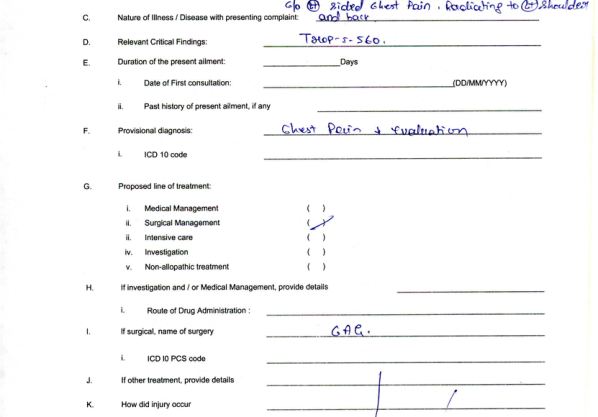 C/o (Lt) sided Chest Pain. Radiating to (Lt) Shoulder
C. Nature of Illness / Disease with presenting complaint: and back
D. Relevant Critical Findings: Trop-I-560.
E. Duration of the present ailment: Days
i. Date of First consultation: (DD/MM/YYYY)
ii. Past history of present ailment, if any
F. Provisional diagnosis: Chest Pain evaluation
i. ICD 10 code
G. Proposed line of treatment:
i. Medical Management ( )
ii. Surgical Management (✓)
ii. Intensive care ( )
iv. Investigation ( )
v. Non-allopathic treatment ( )
H. If investigation and / or Medical Management, provide details
i. Route of Drug Administration :
I. If surgical, name of surgery CAG.
i. ICD I0 PCS code
J. If other treatment, provide details
K. How did injury occur